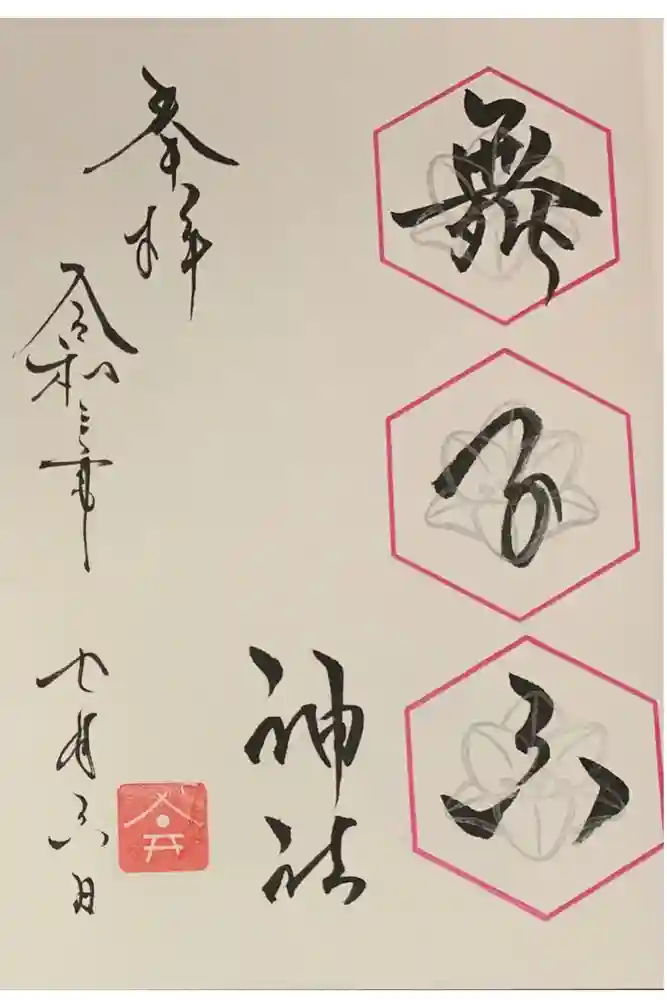 舞子六
神社
奉拝
令和三年七月六日